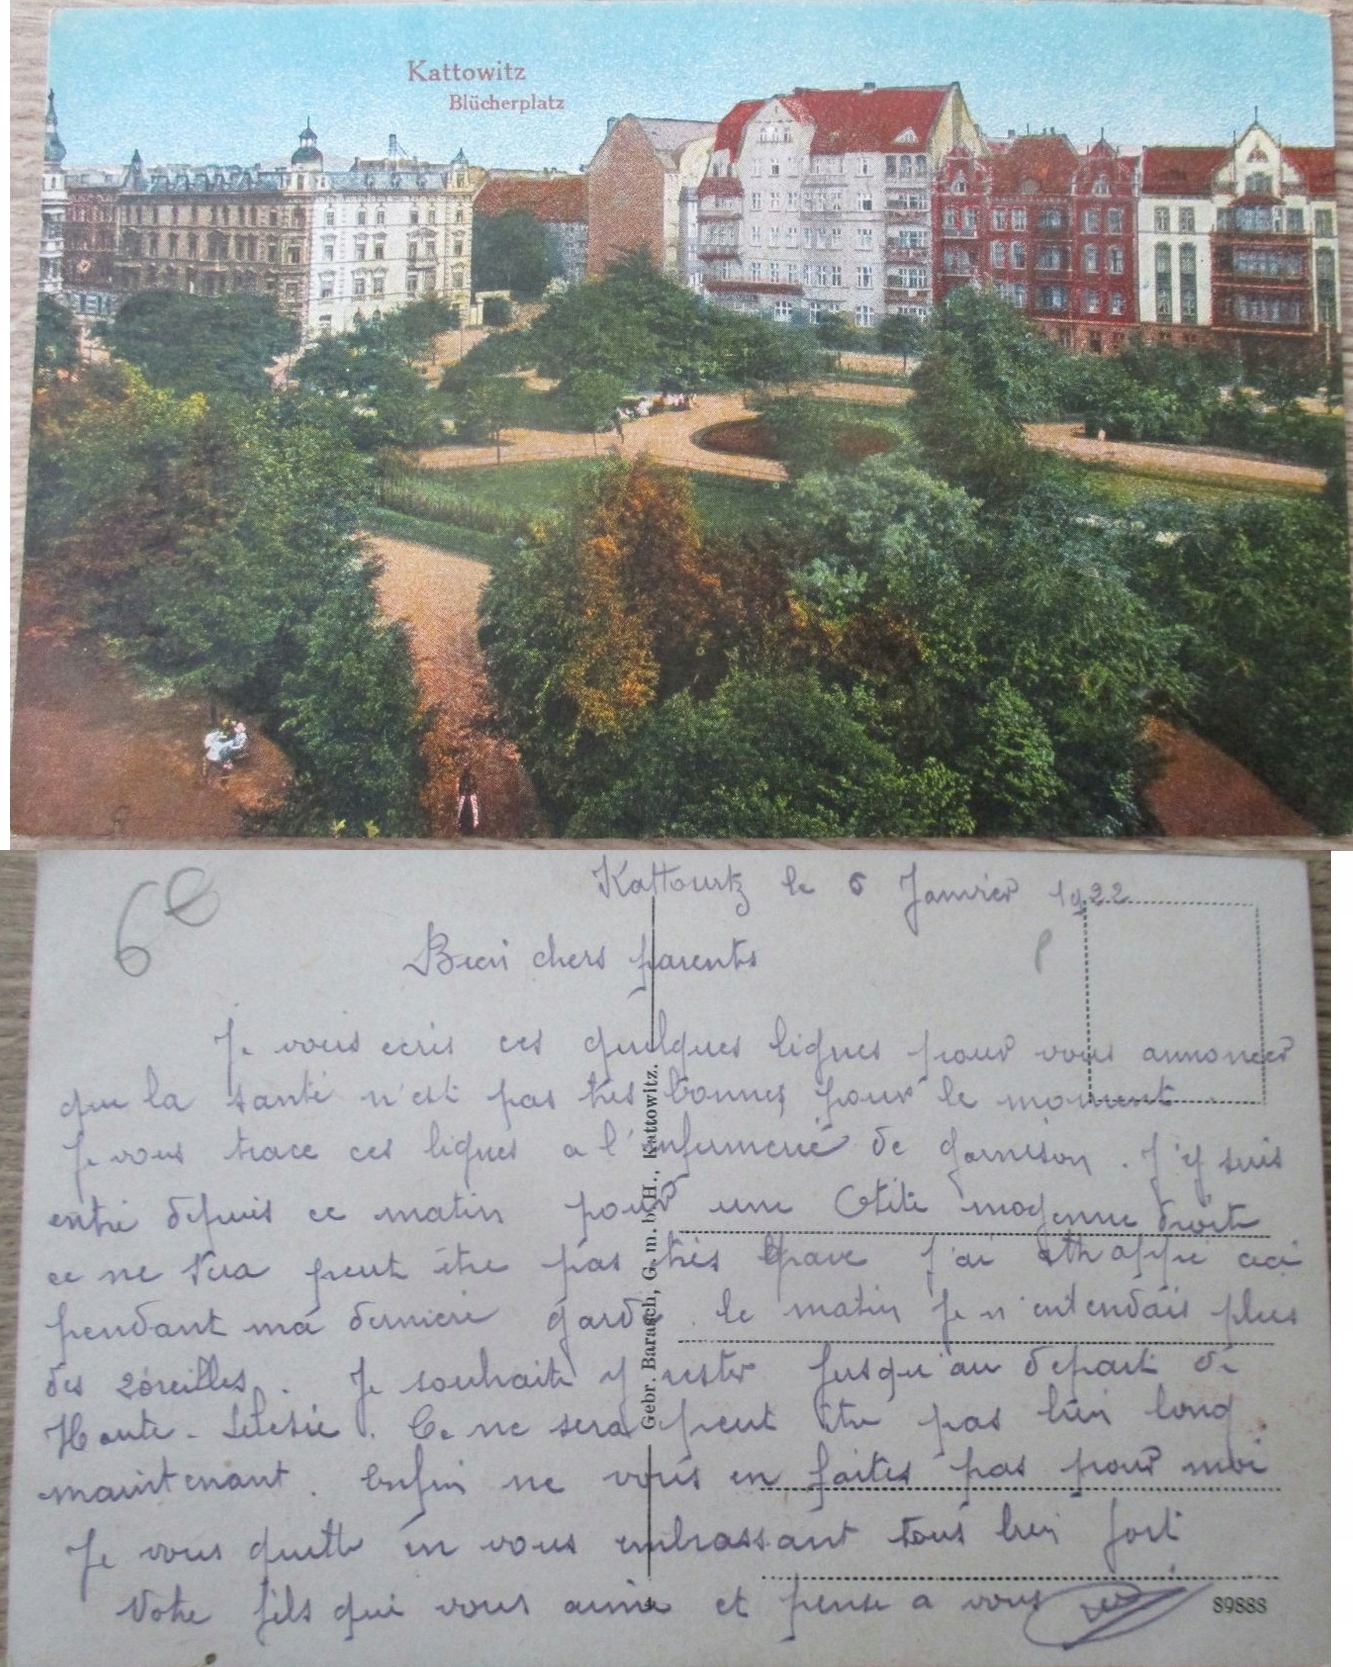 Kattowitz
Blücherplatz
6€
Kattowitz le 6 Janvier 1922
Bien chers parents
Je vous ecris ces quelques lignes pour vous annoncer
que la santé n'est pas très bonnes pour le moment.
Je vous trace ces lignes a l'infirmerie de garnison. J'y suis
entré depuis ce matin pour une Otite moyenne droite
ce ne sera peut être pas très grave j'ai atthappé ceci
pendant ma derniere garde. le matin je n'entendais plus
des 2 oreilles. Je souhaite y rester jusqu'au depart de
Haute-Silesie. Ce ne sera peut être pas bien long
maintenant. Enfin ne vous en faites pas pour moi
Je vous quitte en vous embrassant tous bien fort
Votre fils qui vous aime et pense a vous
Gebr. Barasch, G. m. b. H., Kattowitz.
89888